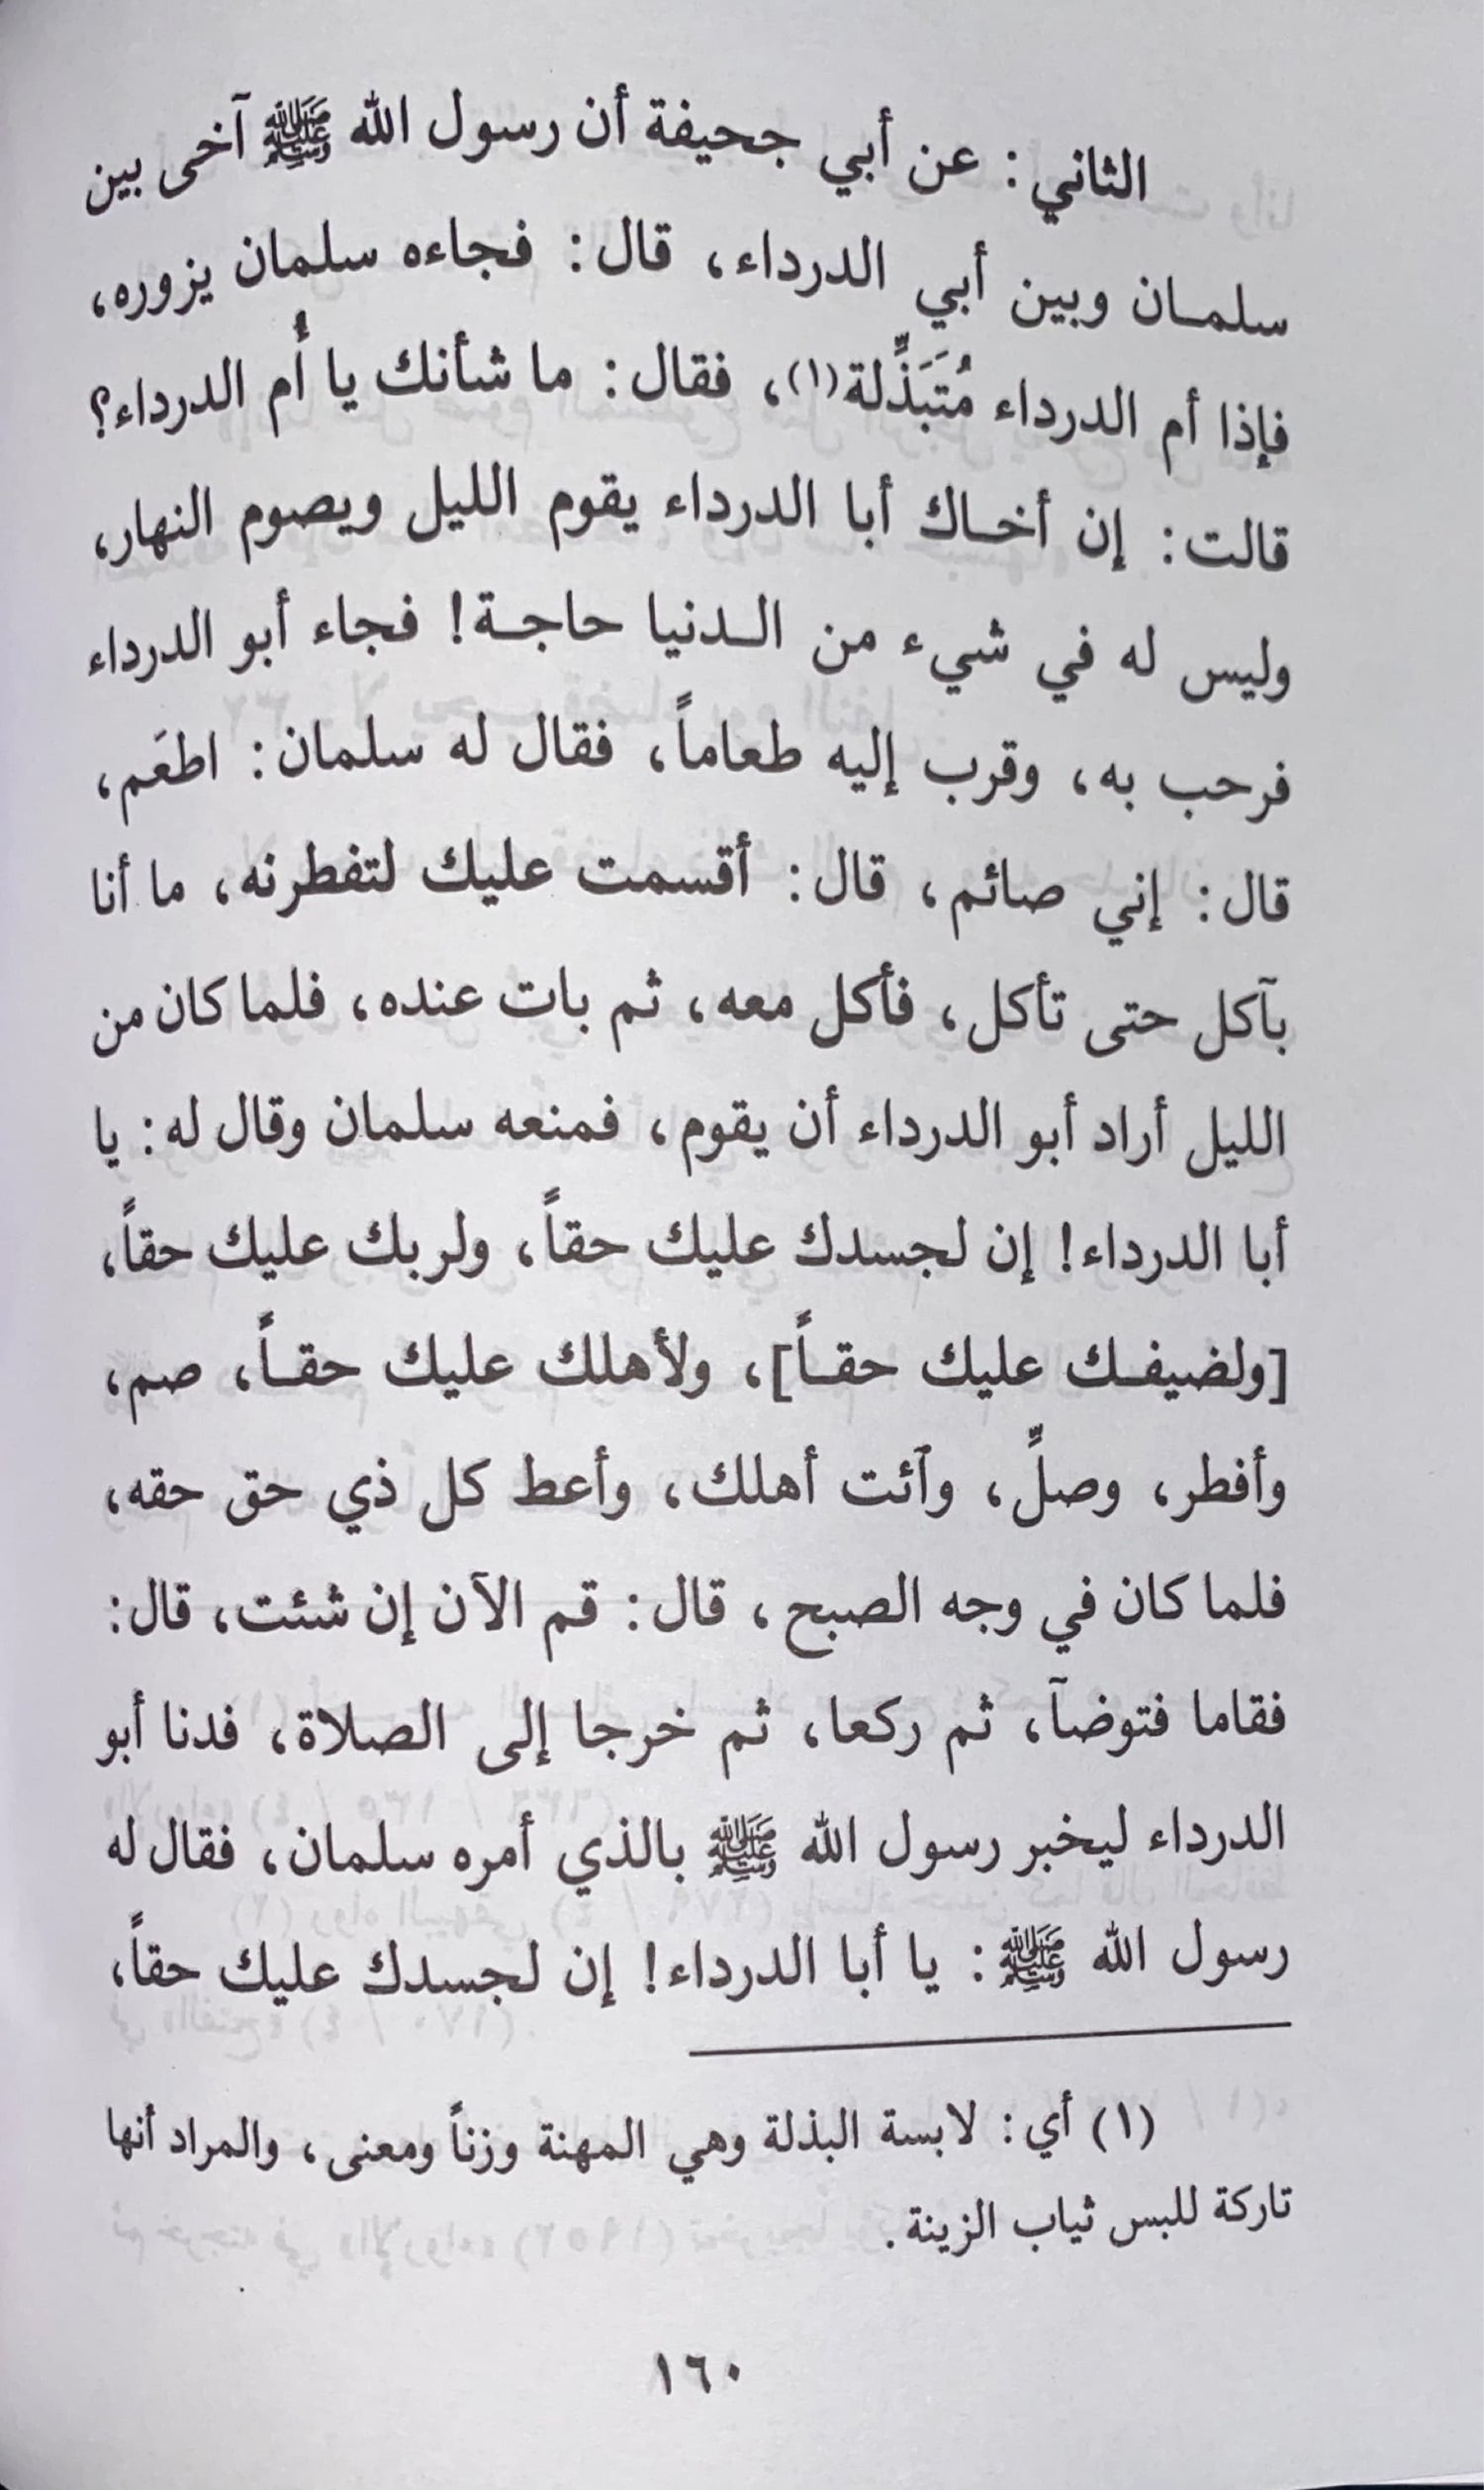 الثاني: عن أبي جحيفة أن رسول الله ﷺ آخى بين
سلمـان وبين أبي الدرداء، قال: فجاءه سلمان يزوره،
فإذا أم الدرداء مُتَبَذِّلة(١)، فقال: ما شأنك يا أُم الدرداء؟
قالت: إن أخـاك أبا الدرداء يقوم الليل ويصوم النهار،
وليس له في شيء من الـدنيا حاجـة! فجاء أبو الدرداء
فرحب به، وقرب إليه طعاماً، فقال له سلمان: اطعَم،
قال: إني صائم، قال: أقسمت عليك لتفطرنه، ما أنا
بآكل حتى تأكل، فأكل معه، ثم بات عنده، فلما كان من
الليل أراد أبو الدرداء أن يقوم، فمنعه سلمان وقال له: يا
أبا الدرداء! إن لجسدك عليك حقاً، ولربك عليك حقاً،
[ولضيفـك عليك حقـاً]، ولأهلك عليك حقـاً، صم،
وأفطر، وصلِّ، وآئت أهلك، وأعط كل ذي حق حقه،
فلما كان في وجه الصبح، قال: قم الآن إن شئت، قال:
فقاما فتوضآ، ثم ركعا، ثم خرجا إلى الصلاة، فدنا أبو
الدرداء ليخبر رسول الله ﷺ بالذي أمره سلمان، فقال له
رسول الله ﷺ: يا أبا الدرداء! إن لجسدك عليك حقاً،
(١) أي: لابسة البذلة وهي المهنة وزناً ومعنى، والمراد أنها
تاركة للبس ثياب الزينة.
١٦٠